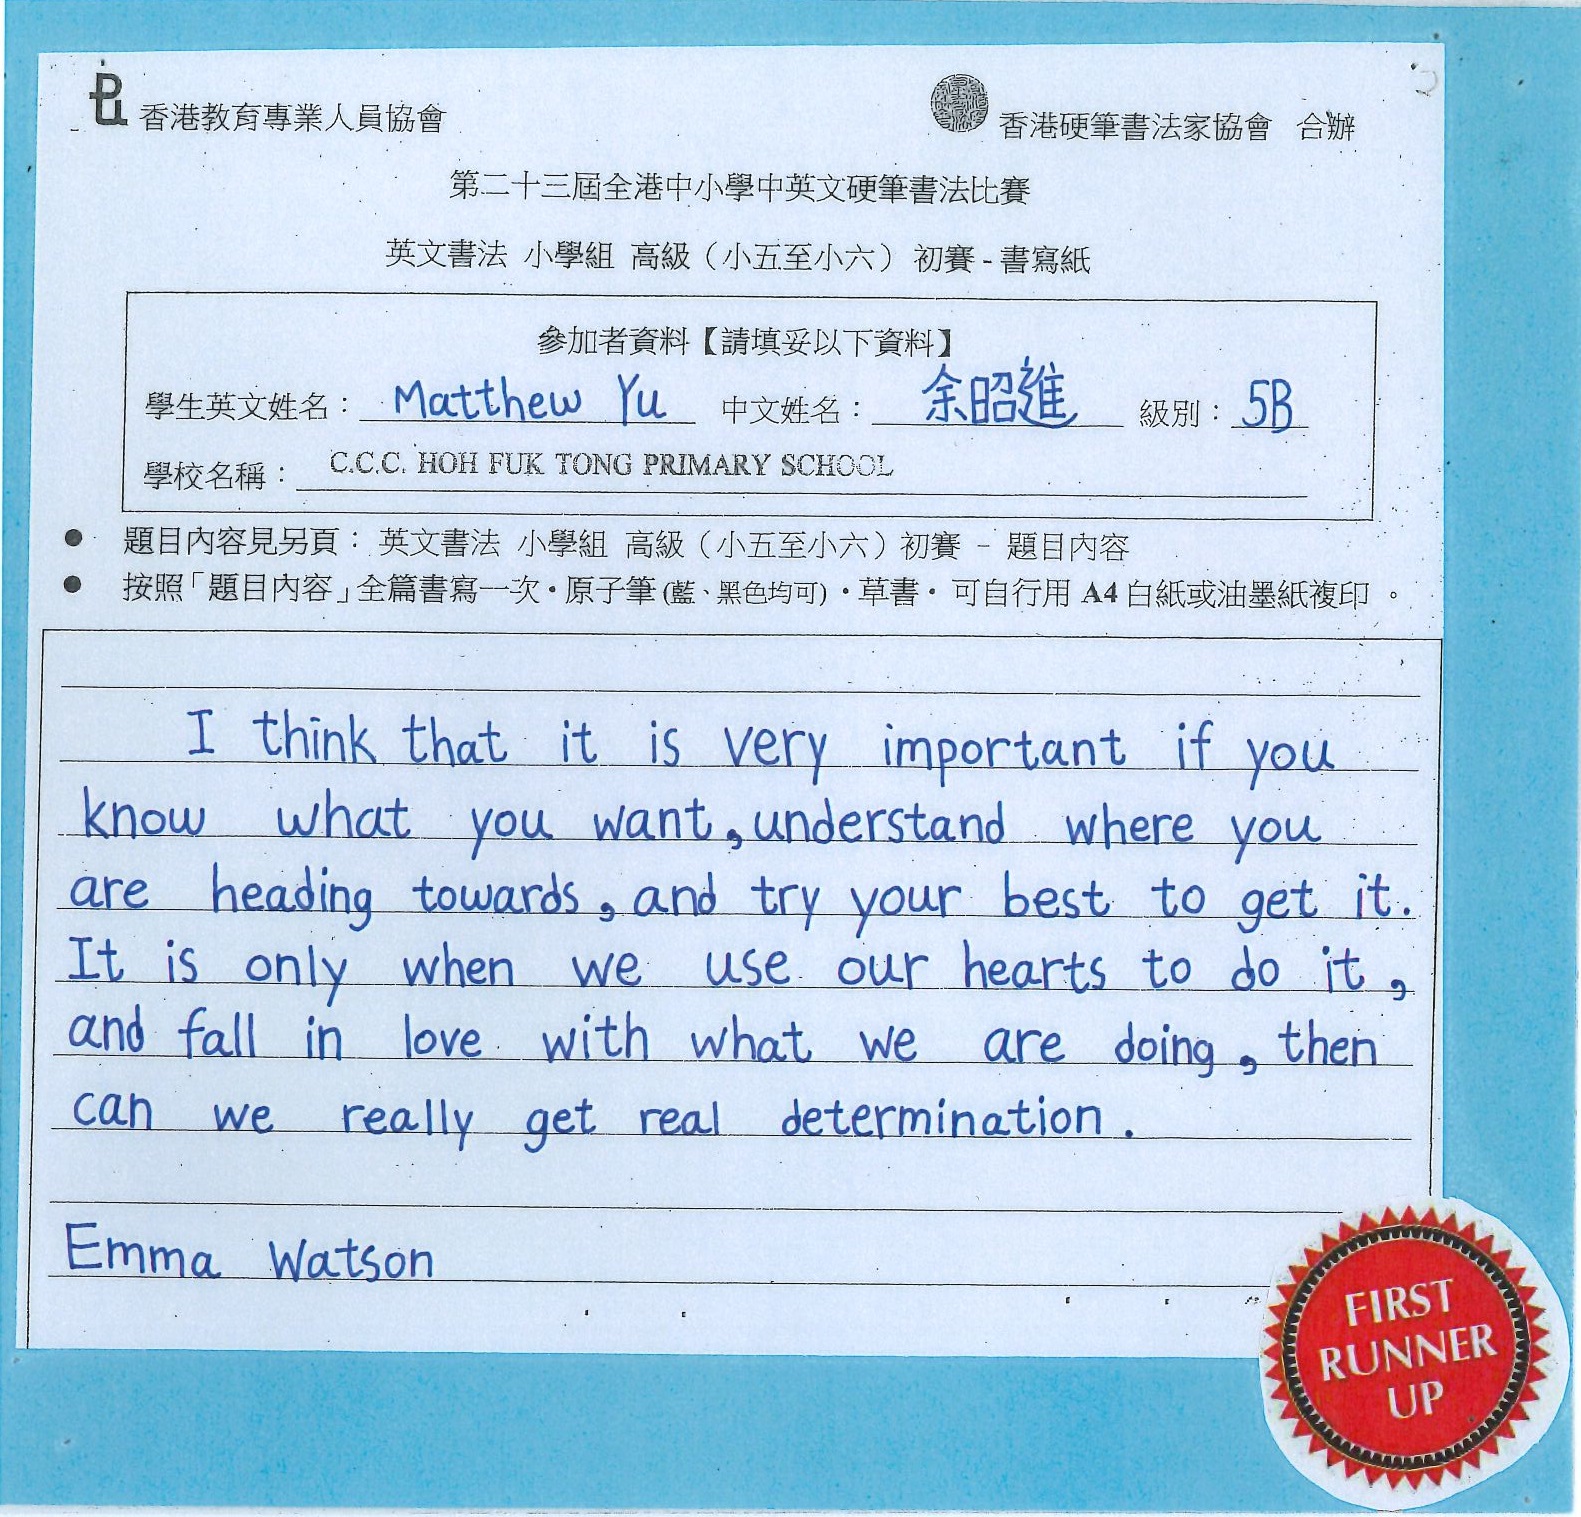 香港教育專業人員協會
香港硬筆書法家協會 合辦
第二十三屆全港中小學中英文硬筆書法比賽
英文書法 小學組 高級（小五至小六）初賽 - 書寫紙
參加者資料【請填妥以下資料】
學生英文姓名： Matthew Yu 中文姓名： 余昭進 級別： 5B
學校名稱： C.C.C. HOH FUK TONG PRIMARY SCHOOL
● 題目內容見另頁： 英文書法 小學組 高級（小五至小六）初賽 － 題目內容
● 按照「題目內容」全篇書寫一次・原子筆 (藍、黑色均可)・草書・可自行用 A4 白紙或油墨紙複印 。
I think that it is very important if you
know what you want, understand where you
are heading towards, and try your best to get it.
It is only when we use our hearts to do it,
and fall in love with what we are doing, then
can we really get real determination.
Emma Watson
FIRST
RUNNER
UP